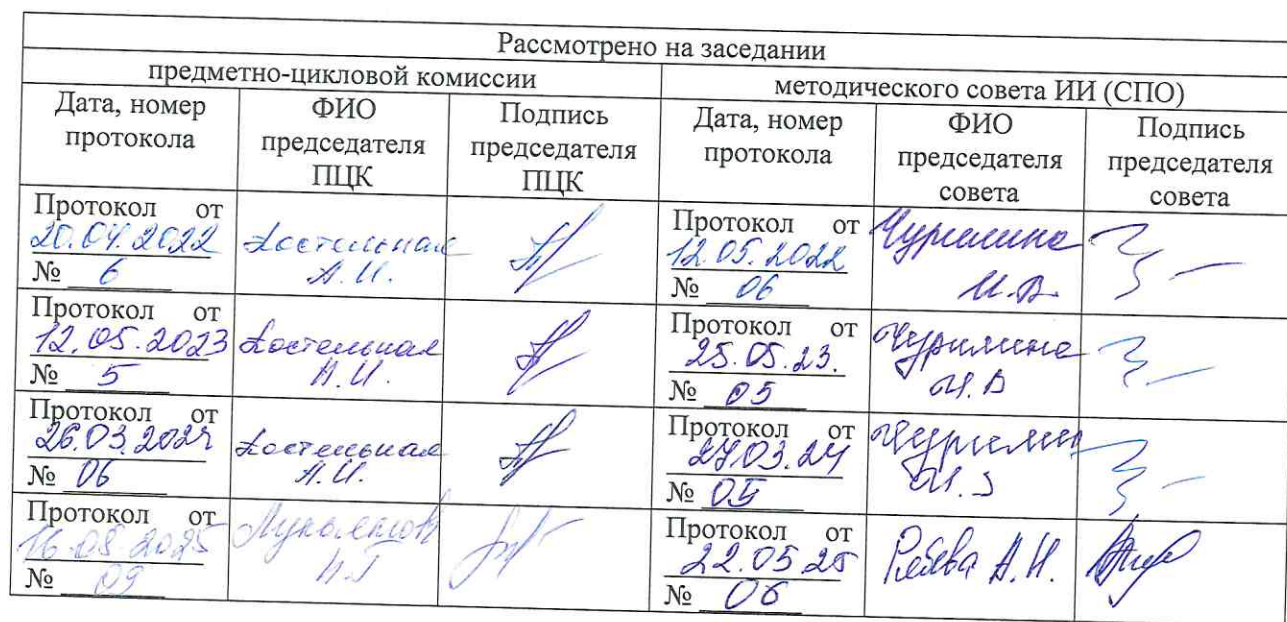 Рассмотрено на заседании
предметно-цикловой комиссии
методического совета ИИ (СПО)
Дата, номер
протокола
ФИО
председателя
ПЦК
Подпись
председателя
ПЦК
Дата, номер
протокола
ФИО
председателя
совета
Подпись
председателя
совета
Протокол от
20.04.2022
№ 6
Костельная
А.И.
Протокол от
12.05.2022
№ 06
Чурилина
И.В.
Протокол от
12.05.2023
№ 5
Костельная
А.И.
Протокол от
25.05.23.
№ 05
Чурилина
И.В
Протокол от
26.03.2024
№ 06
Костельная
А.И.
Протокол от
03.24
№ 05
Протокол от
16.05.2025
№ 09
Протокол от
22.05 25
№ 06
А.И.